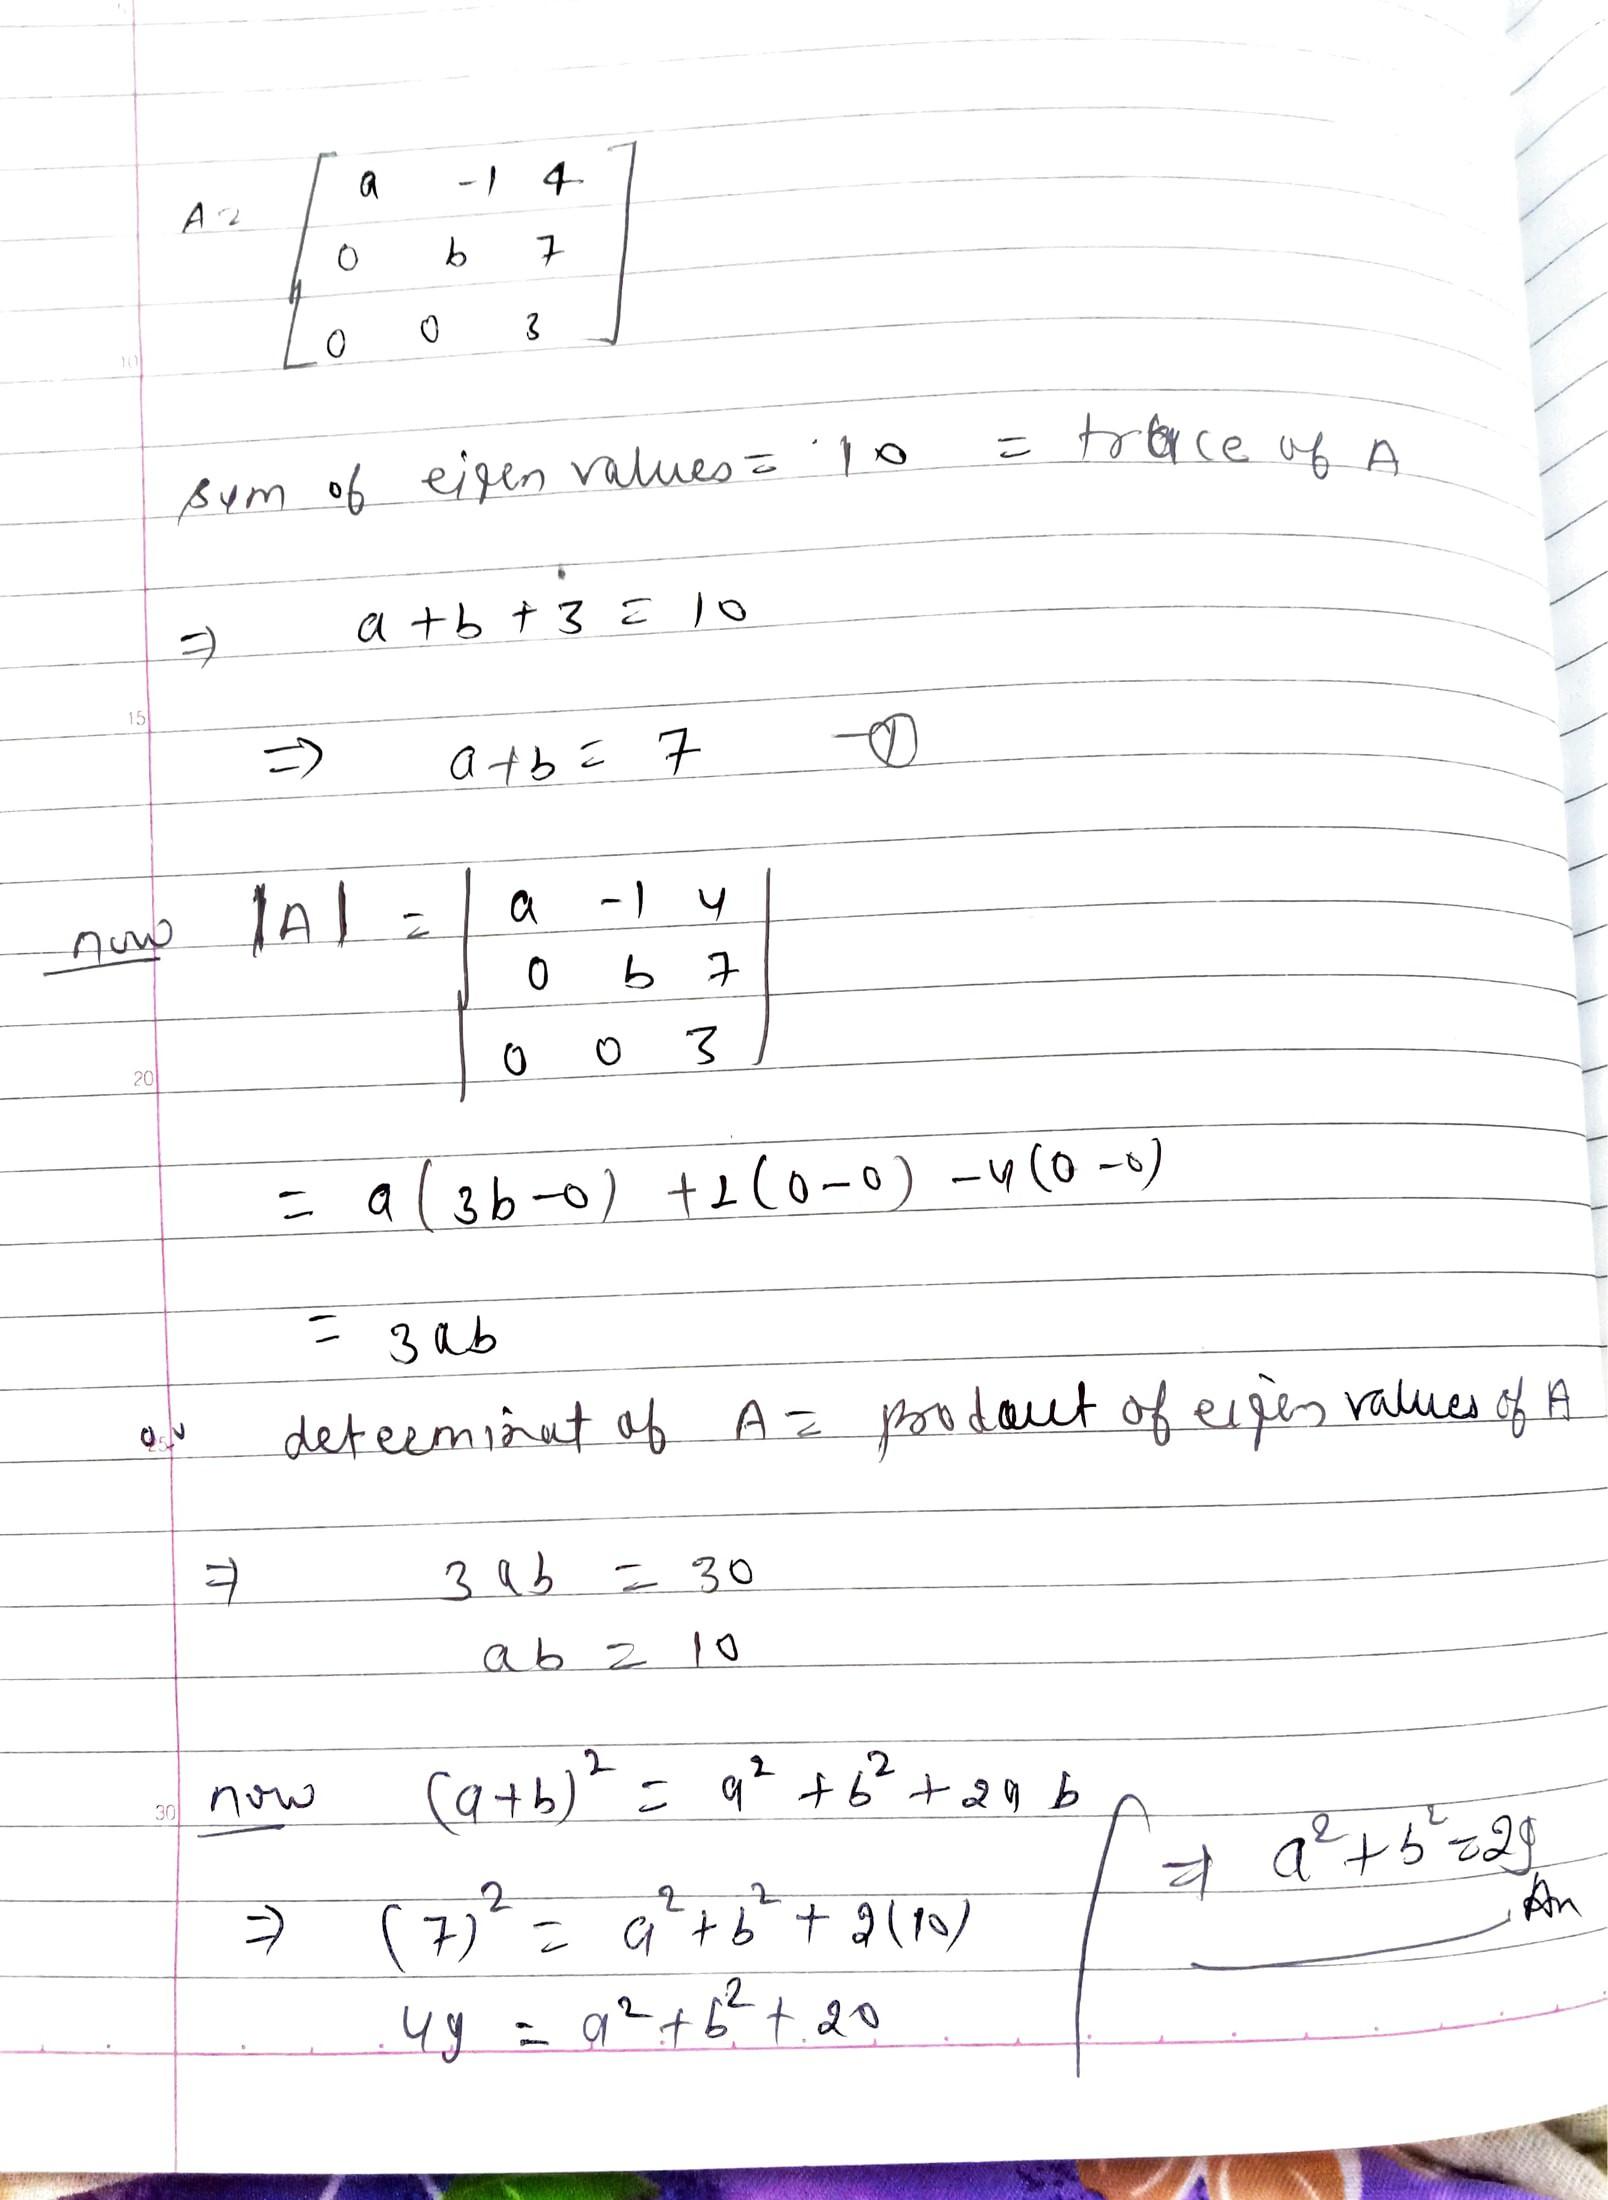 A = [ a -1 4
0 b 7
0 0 3 ]
10
sum of eigen values = 10 = trace of A
⇒ a + b + 3 = 10
15
⇒ a + b = 7 —①
now |A| = | a -1 4
0 b 7
0 0 3 |
20
= a(3b-0) +1(0-0) -4(0-0)
= 3ab
determinat of A = product of eigen values of A
25
⇒ 3ab = 30
ab = 10
30
now (a+b)² = a² + b² + 2ab
⇒ (7)² = a² + b² + 2(10)
49 = a² + b² + 20
⇒ a² + b² = 29
An